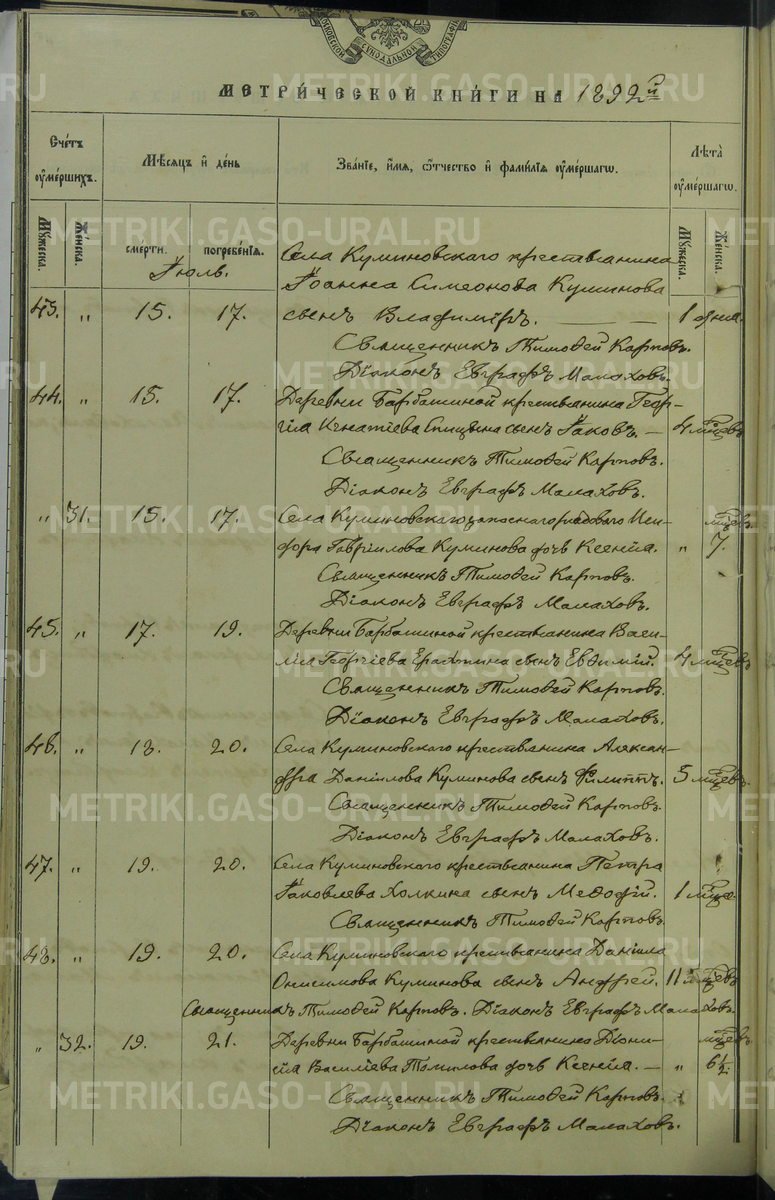 МОСКОВСКОЙ СУНОДАЛЬНОЙ ТИПОГРАФІИ
МЕТРИ́ЧЕСКОЙ КНИ́ГИ НА 1892й
Сче́тъ ᲂумершихъ.
Мѣсяцъ и день
Зва́ніе, и́мя, ѻтчество и фамилія ᲂумершагѡ.
Лѣта ᲂумершагѡ.
Мужеска.
Женска.
смерти.
погребенія.
Мужеска.
Женска.
Іюль.
Села Куминовскаго крестьянина
Іоанна Симеонова Куминова
43. " 15. 17. сынъ Владиміръ. — 1 дня.
Священникъ Тимоѳей Карповъ.
Діаконъ Евграфъ Малаховъ.
44. " 15. 17. Деревни Барбашиной крестьянина Геор-
гія Игнатіева Спицына сынъ Іаковъ. — 4 мѣсяцевъ
Священникъ Тимоѳей Карповъ.
Діаконъ Евграфъ Малаховъ.
" 31. 15. 17. Села Куминовскаго запаснаго рядового Иси- мѣсяцевъ
дора Гавріилова Куминова дочь Ксенія. " 7.
Священникъ Тимоѳей Карповъ.
Діаконъ Евграфъ Малаховъ.
45. " 17. 19. Деревни Барбашиной крестьянина Васи-
лія Георгіева сынъ Евѳимій. 4 мѣсяцевъ
Священникъ Тимоѳей Карповъ.
Діаконъ Евграфъ Малаховъ.
46. " 18. 20. Села Куминовскаго крестьянина Алексан-
дра Даніилова Куминова сынъ Филиппъ. 5 мѣсяцевъ.
Священникъ Тимоѳей Карповъ.
Діаконъ Евграфъ Малаховъ.
47. " 19. 20. Села Куминовскаго крестьянина Петра
Іаковлева Холкина сынъ Меѳодій. 1 мѣсяца.
Священникъ Тимоѳей Карповъ.
48. " 19. 20. Села Куминовскаго крестьянина Даніила
Онисимова Куминова сынъ Андрей. 11 мѣсяцевъ
Священникъ Тимоѳей Карповъ. Діаконъ Евграфъ Малаховъ.
" 32. 19. 21. Деревни Барбашиной крестьянина Діони- мѣсяцевъ
сія Василіева дочь Ксенія. — " 6½.
Священникъ Тимоѳей Карповъ.
Діаконъ Евграфъ Малаховъ.
METRIKI.GASO-URAL.RU